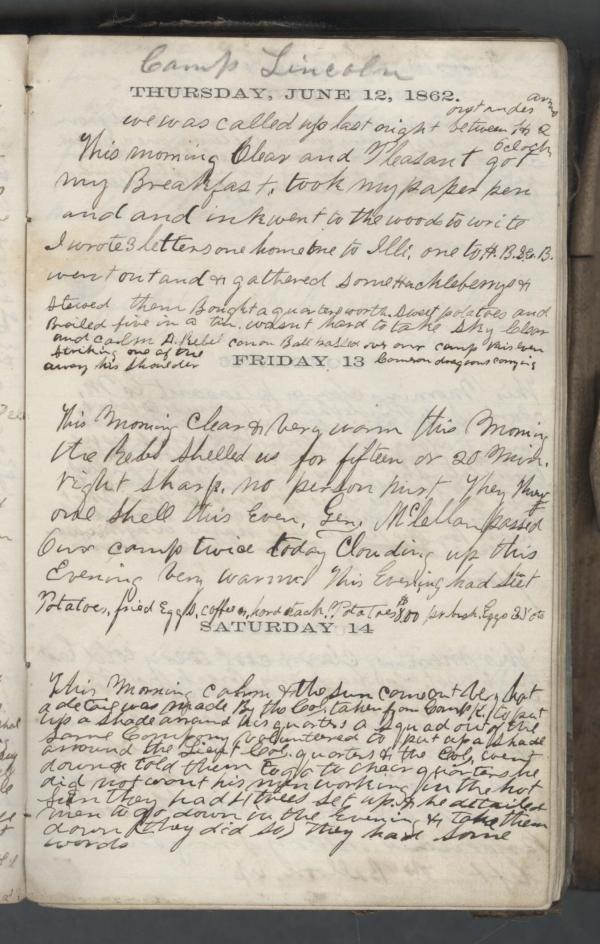 Camp Lincoln
THURSDAY, JUNE 12, 1862.
we was called up last night between 1 & 2
oclock
This morning Clear and Pleasant got
my Breakfast, took my paper pen
and and ink went to the woods to write
I wrote 3 letters one home one to Ills, one to H. B. & B.
went out and & gathered some Huckleberrys &
Stewed them Bought a quarters worth Sweet potatoes and
Broiled five in a tin, wasnt hard to take Sky Clear
and calm A Rebel canon Ball passed over our camp this even
Striking one of the Cameron dragoons carrying
away his Shoulder
FRIDAY 13
This Morning Clear & very warm this Morning
the Rebs Shelled us for fifteen or 20 Min.
right sharp, no person hurt They Threw
one Shell this Even, Gen, McLellan passed
Our camp twice today Clouding up this
Evening very warm This Evening had Sket
Potatoes, fried Eggs, coffee, hard tack. Potatoes $8.00 pr bush, Eggs
SATURDAY 14
This Morning calm & the sun came out very hot
a detail was made By the Col, taken from Comp K, to put
up a shade around his quarters a squad out of the
same Company volunteered to put up a shade
around the Lieut Col, quarters & the Col, went
down & told them to go to their quarters he
did not want his men working in the hot
sun they had 4 trees set up & he detailed
men to go down in the Evening & take them
down (they did so) They had some
words